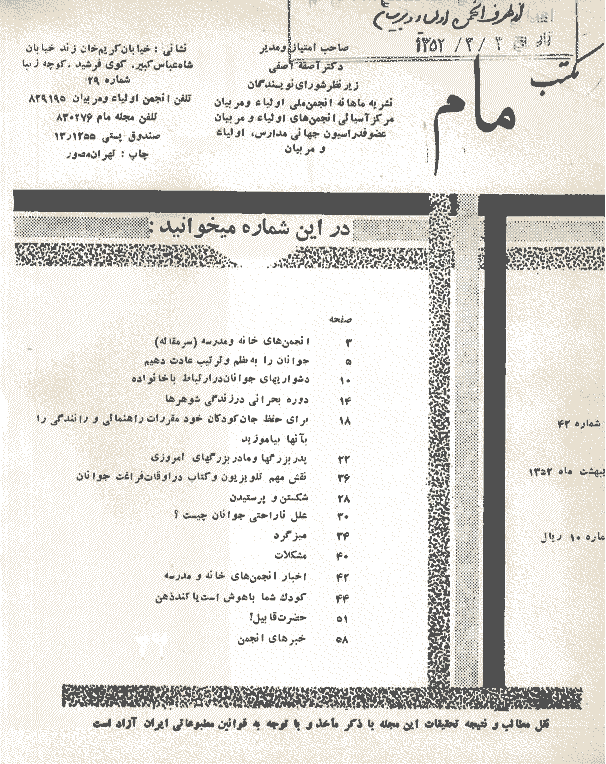 از طرف انجمن اولیاء و مربیان
۱۳۵۲ / ۳ / ۳
مکتب
مام
صاحب امتیاز ومدیر
دکتر آصفه آصفی
زیر نظر شورای نویسندگان
نشریه ماهانه انجمن ملی اولیاء ومربیان
مرکز آسیائی انجمن‌های اولیاء و مربیان
عضو فدراسیون جهانی مدارس، اولیاء
و مربیان
نشانی : خیابان کریم‌خان زند خیابان
شاه‌عباس کبیر، کوی فرشید، کوچه زیبا
شماره ۲۹
تلفن انجمن اولیاء ومربیان ۸۲۹۱۹۵
تلفن مجله مام ۸۳۰۲۷۶
صندوق پستی ۱۳٫۱۲۵۵
چاپ : تهران‌مصور
در این شماره میخوانید :
صفحه
۳ انجمن‌های خانه ومدرسه (سرمقاله)
۵ جوانان را به‌نظم وترتیب عادت دهیم
۱۰ دشواریهای جوانان‌در‌ارتباط باخانواده
۱۴ دوره بحرانی درزندگی شوهرها
۱۸ برای حفظ جان‌کودکان خود مقررات راهنمائی و رانندگی را
بآنها بیاموزید
۲۲ پدربزرگها ومادربزرگهای امروزی
۲۶ نقش مهم تلویزیون وکتاب دراوقات‌فراغت جوانان
۲۸ شکستن و پرستیدن
۳۰ علل ناراحتی جوانان چیست ؟
۳۴ میزگرد
۴۰ مشکلات
۴۲ اخبار انجمن‌های خانه و مدرسه
۴۴ کودک شما باهوش است‌یا کندذهن
۵۱ حضرت‌قابیل!
۵۸ خبرهای انجمن
شماره ۴۲
یبهشت ماه ۱۳۵۲
ماره ۱۰ ریال
نقل مطالب و نتیجه تحقیقات این مجله با ذکر مأخذ و با توجه به قوانین مطبوعاتی ایران آزاد است